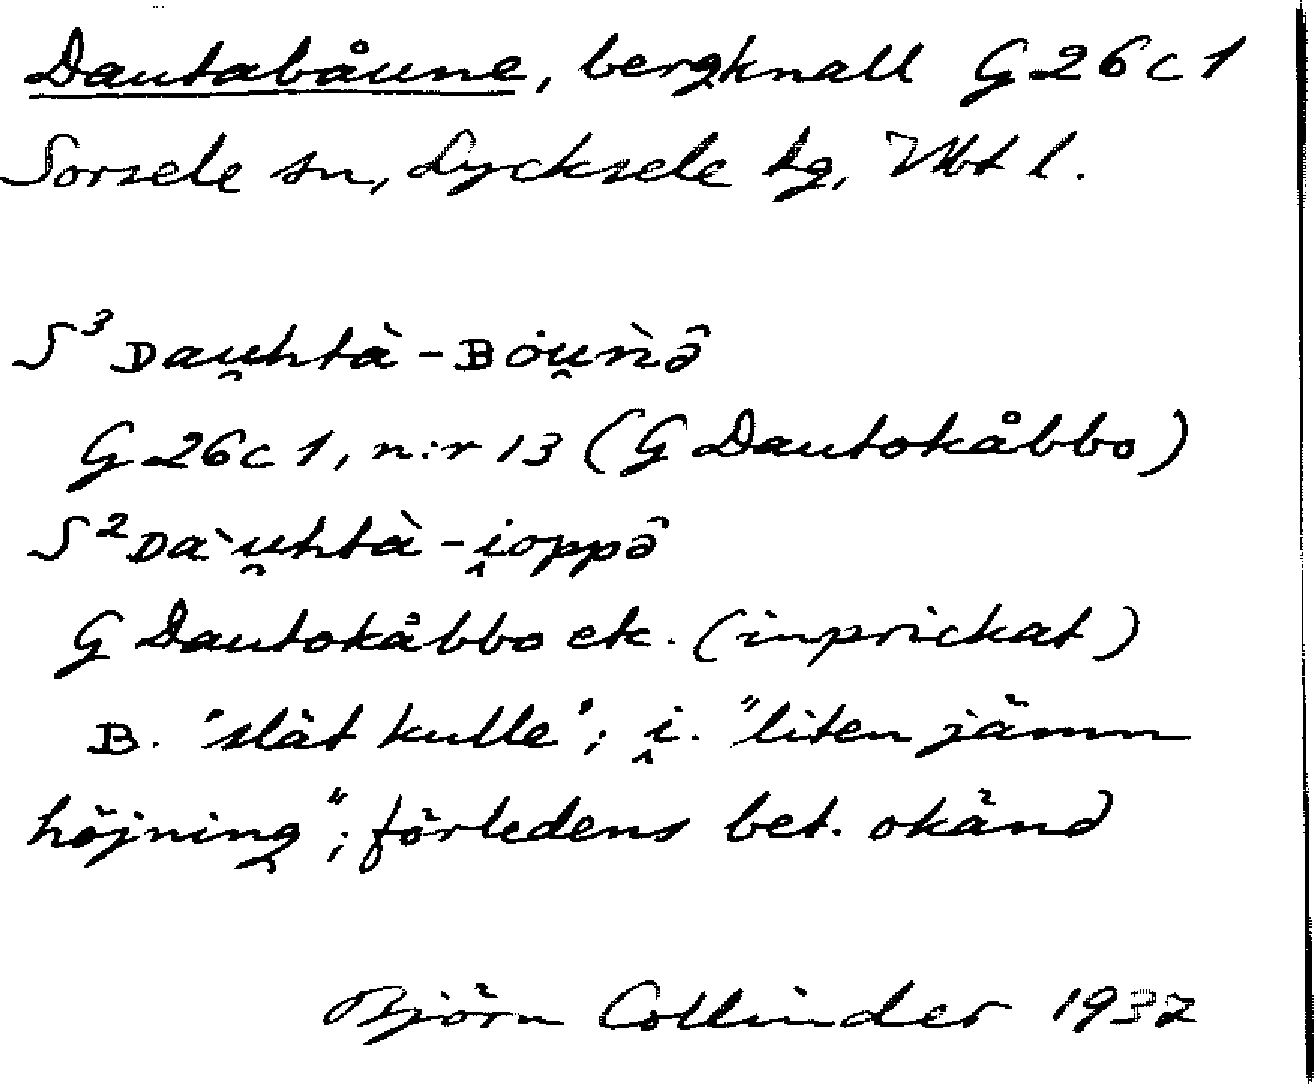 Dautabåune, bergknall G 26 c 1
Sorsele sn, Lycksele tg, Vbt l.
S³ ᴅau̯htà-ʙȯu̯ǹə̂
G 26 c 1, n:r 13 (G Dautokåbbo)
S² ᴅa`u̯htà-i̭oppə̂
G Dautokåbbo ek. (inprickat)
ʙ. "slät kulle"; i̭. "liten jämn
höjning"; förledens bet. okänd
Björn Collinder 1937